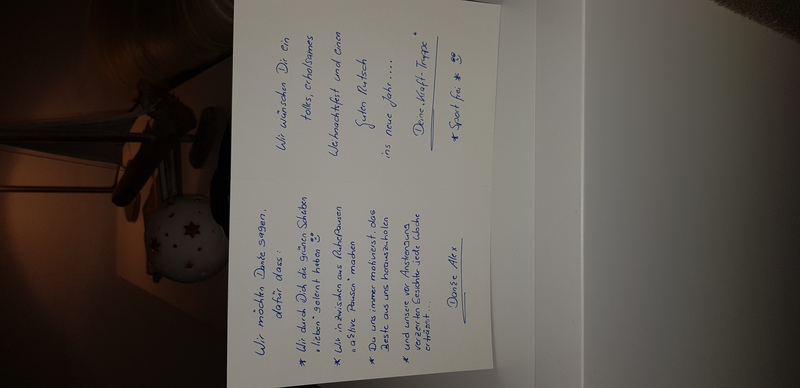 Wir möchten Danke sagen,
dafür dass:
* Wir durch Dich die grünen Scheiben
"lieben" gelernt haben
* Wir inzwischen aus Ruhepausen
"aktive Pausen" machen
* Du uns immer motivierst, das
Beste aus uns herauszuholen
* und unsere vor Anstrengung
verzerrten Gesichter jede Woche
erträgst...
Danke Alex
Wir wünschen Dir ein
tolles, erholsames
Weihnachtsfest und einen
Guten Rutsch
ins neue Jahr....
Deine "Kraft-Truppe"
* Sport frei *